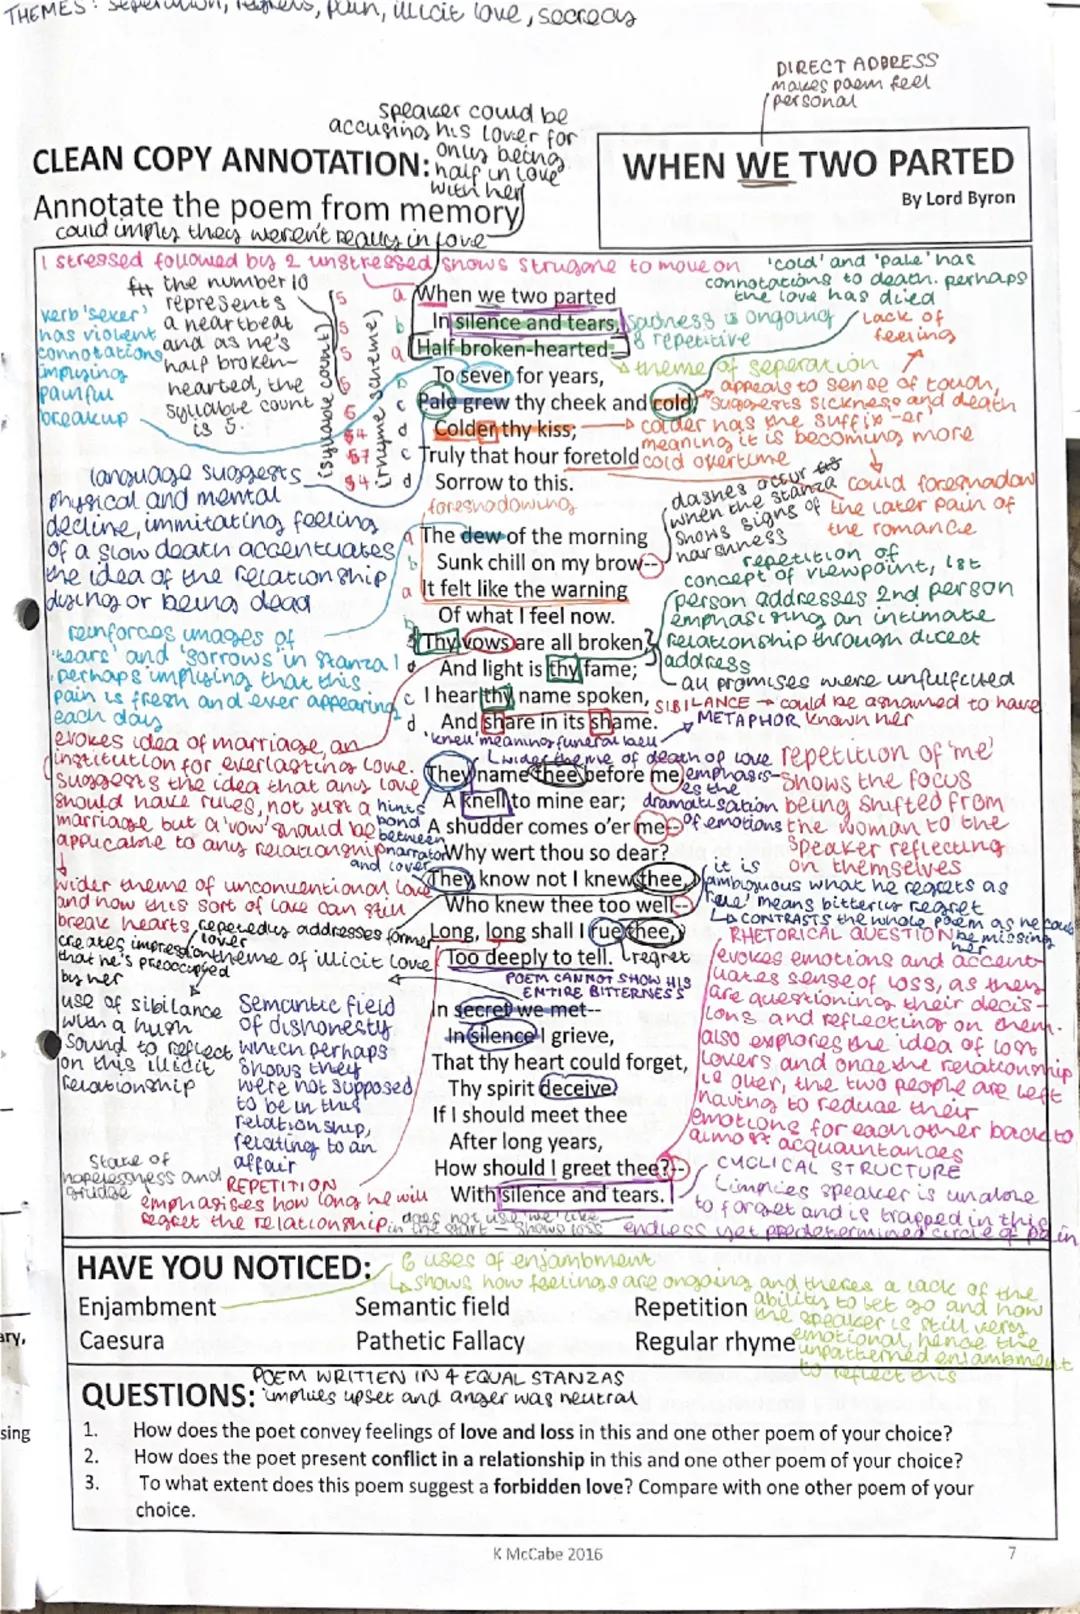 THEMES: seperation, regrets, pain, illicit love, secrecy
DIRECT ADDRESS
makes poem feel
personal
speaker could be
accusing his lover for
only being
half in love
with her
CLEAN COPY ANNOTATION:
WHEN WE TWO PARTED
By Lord Byron
Annotate the poem from memory
could imply they weren't really in love
1 stressed followed by 2 unstressed, shows struggle to move on
'cold' and 'pale' has
connotations to death. perhaps
the love has died
the number 10
represents
a heartbeat
and as he's
half broken-
hearted, the
syllable count
is 5.
verb 'sever'
has violent
connotations
implying
painful
breakup
(syllable count)
5
5
5
6
6
4
7
4
(rhyme scheme)
a
b
a
b
c
d
c
d
When we two parted
In silence and tears,
Half broken-hearted
To sever for years,
Pale grew thy cheek and cold,
Colder thy kiss;
Truly that hour foretold
Sorrow to this.
sadness is ongoing
& repetitive
lack of
feeling
theme of seperation
appeals to sense of touch,
suggests sickness and death
colder has the suffix -er,
meaning it is becoming more
cold overtime
could foreshadow
the later pain of
the romance
foreshadowing
dashes occur
when the stanza
shows signs of
harshness
language suggests
physical and mental
decline, immitating feeling
of a slow death accentuates
the idea of the relationship
dying or being dead
a
b
a
b
c
d
c
d
The dew of the morning
Sunk chill on my brow--
It felt like the warning
Of what I feel now.
Thy vows are all broken,
And light is thy fame;
I hear thy name spoken,
And share in its shame.
repetition of
concept of viewpoint, 1st
person addresses 2nd person
emphasising an intimate
relationship through direct
address
all promises were unfulfilled
SIBILANCE → could be ashamed to have
known her
METAPHOR
reinforces images of
'tears' and 'sorrows' in stanza 1
perhaps implying that this
pain is fresh and ever appearing
each day
'knell' meaning funeral bell
wider theme of death of love
evokes idea of marriage, an
institution for everlasting love.
suggests the idea that any love
should have rules, not just a
marriage but a 'vow' should be
applicable to any relationship
hints
bond
between
narrator
and lover
They name thee before me,
A knell to mine ear;
A shudder comes o'er me--
Why wert thou so dear?
They know not I knew thee,
Who knew thee too well--
Long, long shall I rue thee,
Too deeply to tell.
emphasis-
es the
dramatisation
of emotions
repetition of 'me'
shows the focus
being shifted from
the woman to the
speaker reflecting
on themselves
it is
ambiguous what he regrets as
'rue' means bitterly regret
CONTRASTS the whole poem as he could
be missing
her
regret
wider theme of unconventional love
and how this sort of love can still
break hearts
repeatedly addresses former
lover
creates impression
that he's preoccupied
by her
theme of illicit love
POEM CANNOT SHOW HIS
ENTIRE BITTERNESS
RHETORICAL QUESTION
evokes emotions and accent-
uates sense of loss, as they
are questioning their decis-
ions and reflecting on them.
also explores the idea of lost
lovers and once the relationship
is over, the two people are left
having to reduce their
emotions for eachother back to
almost acquaintances
use of sibilance
with a hush
sound to reflect
on this illicit
relationship
Semantic field
of dishonesty
which perhaps
shows they
were not supposed
to be in this
relationship,
relating to an
affair
In secret we met--
In silence I grieve,
That thy heart could forget,
Thy spirit deceive.
If I should meet thee
After long years,
How should I greet thee?--
With silence and tears.
State of
hopelessness and
grudge
REPETITION
emphasises how long he will
regret the relationship
does not use 'we' like
in the start - shows loss
CYCLICAL STRUCTURE
implies speaker is unable
to forget and is trapped in this
endless yet predetermined circle of pain
HAVE YOU NOTICED:
6 uses of enjambment
shows how feelings are ongoing and theres a lack of the
ability to let go and how
the speaker is still very
emotional, hence the
unpatterned enjambment
to reflect this
Enjambment
Semantic field
Repetition
Caesura
Pathetic Fallacy
Regular rhyme
POEM WRITTEN IN 4 EQUAL STANZAS
implies upset and anger was neutral
QUESTIONS:
1. How does the poet convey feelings of love and loss in this and one other poem of your choice?
2. How does the poet present conflict in a relationship in this and one other poem of your choice?
3. To what extent does this poem suggest a forbidden love? Compare with one other poem of your
choice.
ary,
sing
K McCabe 2016
7